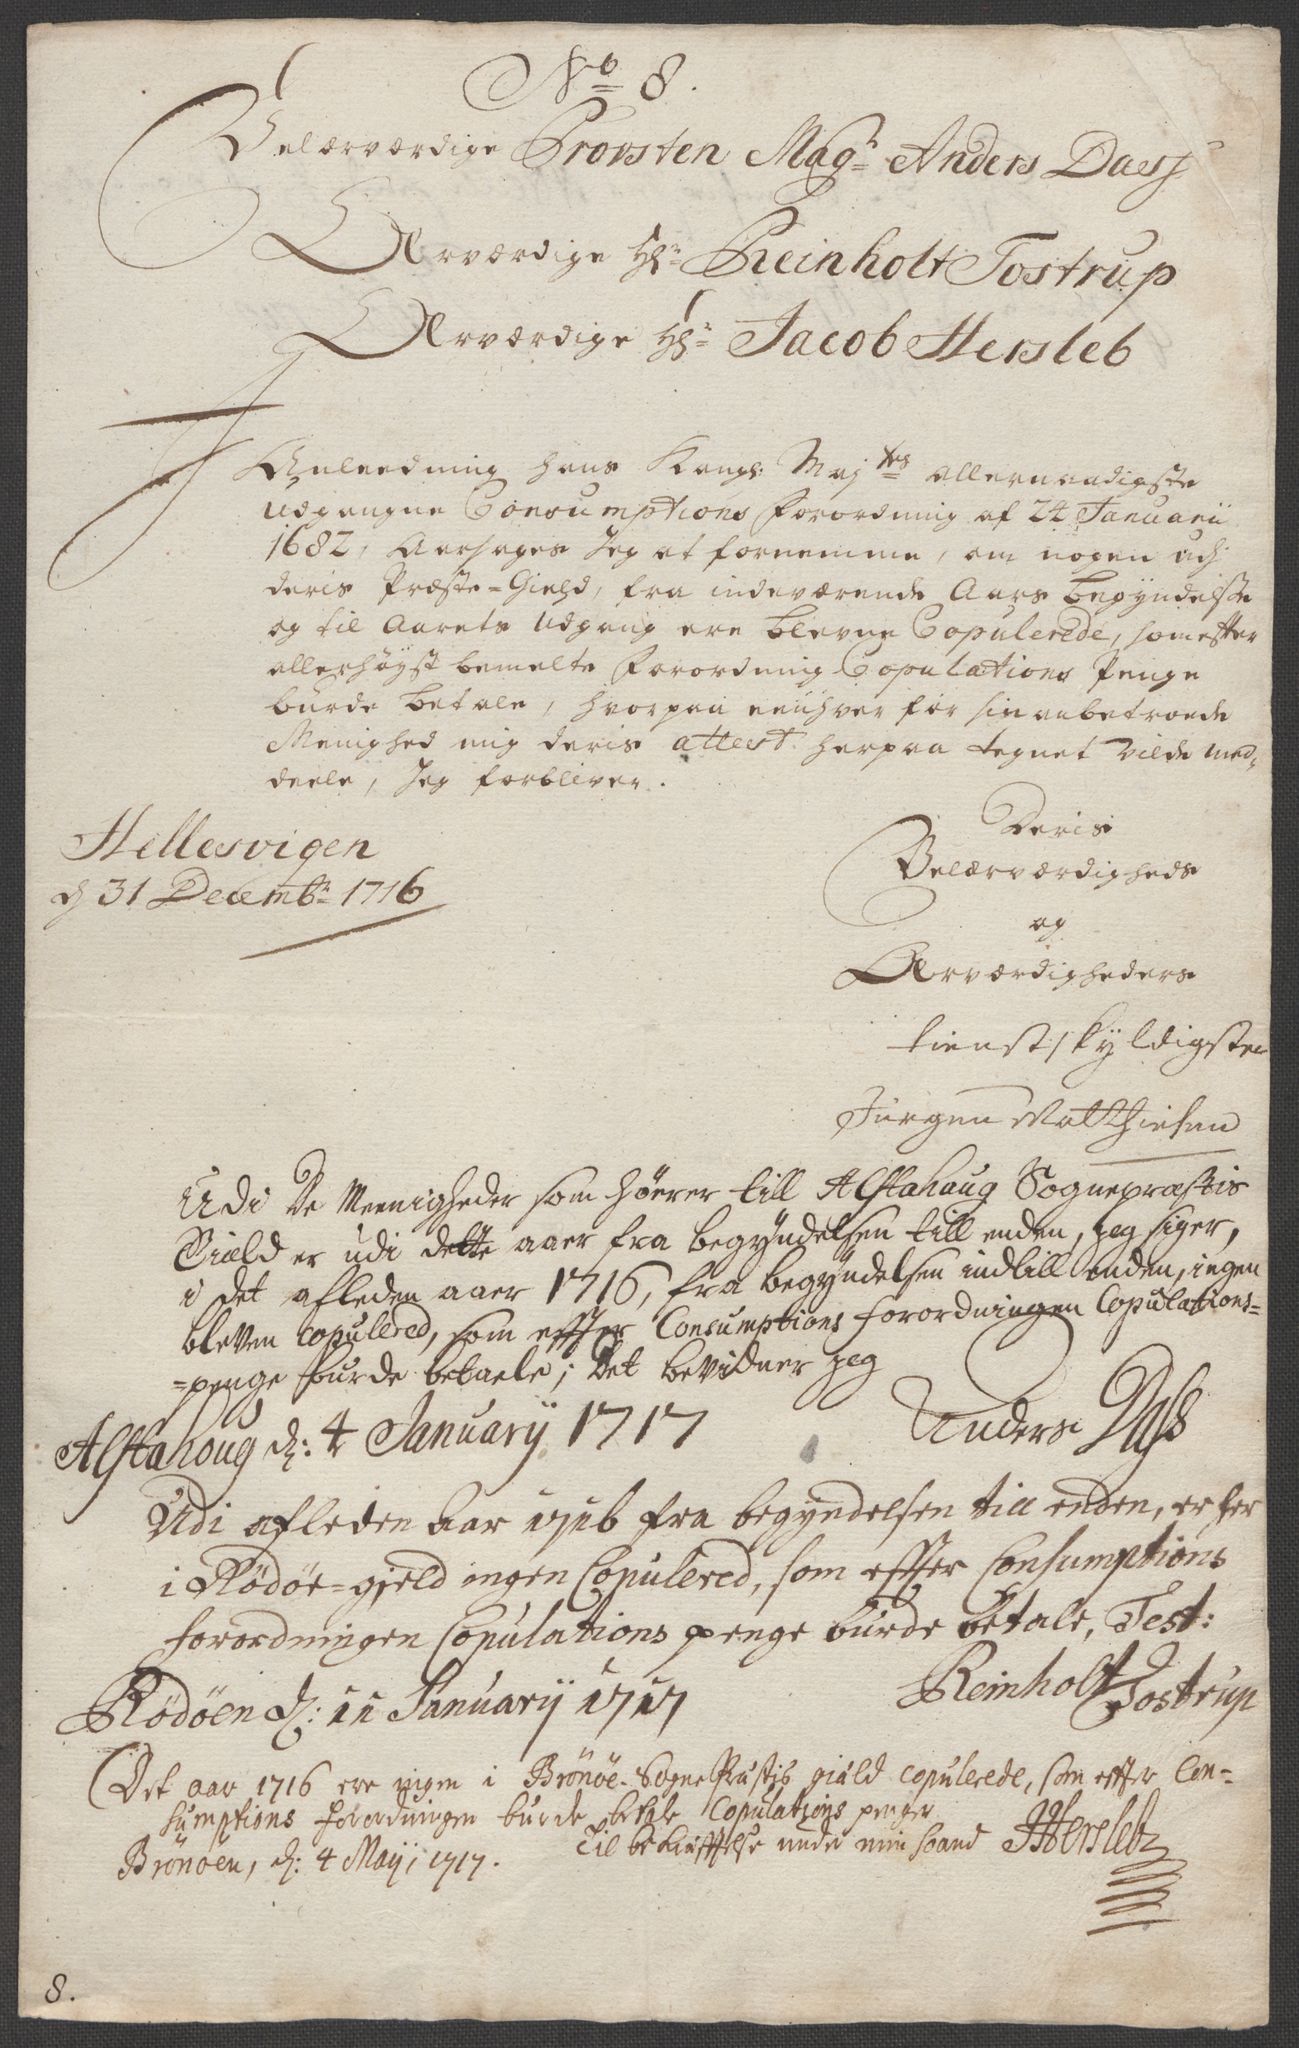 No 8.
Velærværdige Provsten Magr Anders Dass
Ærværdige Hr Reinholt Tostrup
Ærværdige Hr Jacob Hersleb
I Anleedning hans Kongl: Maj:ts allernaadigste
udgangne Consumptions Forordning af 24 Januarii
1682, Aarsages Jeg at fornemme, om nogen udj
deris Præste-Gield, fra indeværende Aars begyndelse
og til Aarets udgang ere blevne Copulerede, som effter
allerhøyst bemelte Forordning Copulations Penge
burde betale, hvorpaa eenhver for sin anbetroede
Menighed mig deris attest herpaa tegnet vilde med-
deele, Jeg forbliver.
Deris
Velærværdigheds
og
Ærværdigheders
tienstskyldigste
Jürgen Matthiesen
Hellesvigen
d 31 Decembr 1716
Udi De Meenigheder som hörer till Alstahaug Sognepræstis
Giæld er udi dette aaer fra begyndelsen till enden, jeg siger,
i det afleden aaer 1716, fra begyndelsen indtill enden, ingen
bleven copulered, som effter Consumptions forordningen Copulations-
=penge burde betaele; Det bevidner jeg
Alstahoug d: 4 Januarij 1717 Anders Dass
Udi afleden Aar 1716 fra begyndelsen till enden, er her
i Rödöe-gield ingen Copulered, som effter Consumptions
forordningen Copulations penge burde betale, Test:
Rödöen d: 11 Januarij 1717 Reinholt Tostrup
Det aar 1716 ere ingen i Brönöe-Sogne Præstis giæld copulerede, som effter Con-
sumptions forordningen burde betale Copulations penger
Til bekræfftelse under min haand JHersleb
Brönöen, d: 4 Maij, 1717.
8.